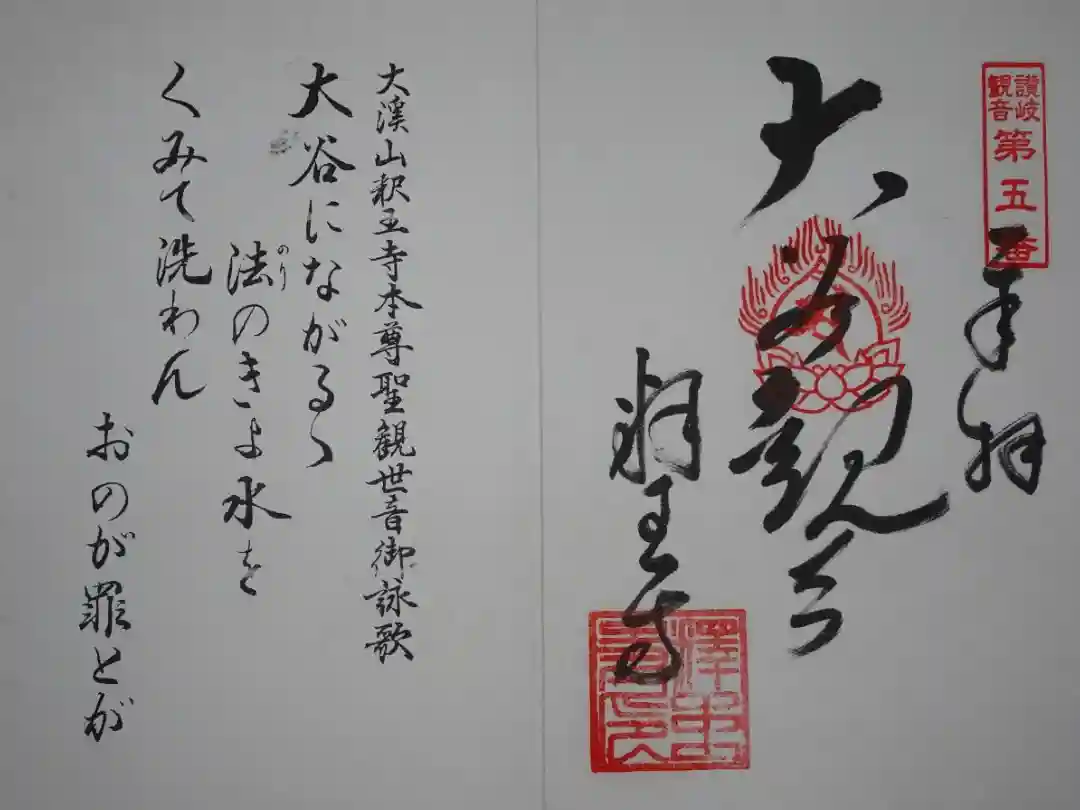 讃岐
観音
第五番
奉拝
大悲観音
釈王寺
大溪山釈王寺本尊聖観世音御詠歌
大谷にながるゝ
法のきよ水を
のり
くみて洗わん
おのが罪とが